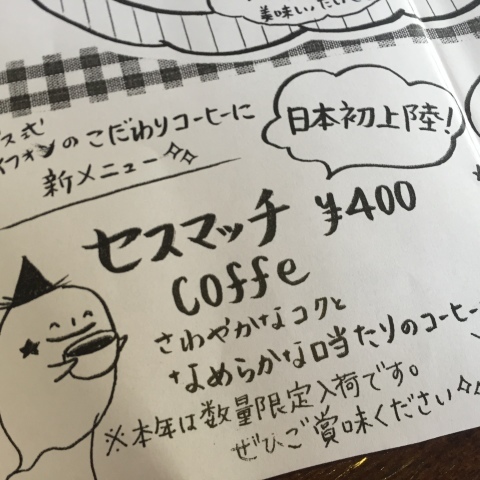 美味い、たい
ス式
イフォンのこだわりコーヒーに
新メニュー
日本初上陸!
セスマッチ ¥400
Coffe
さわやかなコクと
なめらかな口当たりのコーヒー
※本年は数量限定入荷です。
ぜひご賞味ください